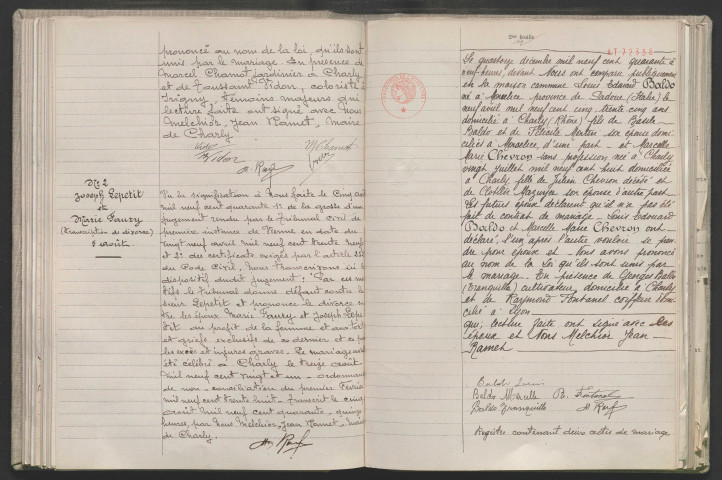 prononcé au nom de la loi, qu'ils sont
unis par le mariage. En présence de
Marcel Chamot jardinier à Charly
et de Toussaint Vidor, coloriste à
Irigny, témoins majeurs qui
lecture faite ont signé avec nous
Melchior, Jean Ramet, maire
de Charly.
Vidor
N° 2
Joseph Lepetit
et
Marie Faury
(transcription de divorce)
5 août.
Vu la signification à nous faite le cinq août
mil neuf cent quarante 1° de la grosse d'un
jugement rendu par le tribunal civil de
première instance de Vienne en date du
vingt neuf avril mil neuf cent trente neuf
et 2° des certificats exigés par l'article 252
du Code Civil, nous transcrivons ici le
dispositif dudit jugement : Par ces mo
tifs, le tribunal donne défaut contre le
sieur Lepetit et prononce le divorce en
tre les époux Marie Faury et Joseph Lepe
tit au profit de la femme et aux torts
et griefs exclusifs de ce dernier et
les excès et injures graves. Le mariage avait
été célébré à Charly le treize août
mil neuf cent vingt et un. ordonnance
de non-conciliation du premier Février
mil neuf cent trente huit. Transcrit le cinq
août mil neuf cent quarante, quinze
heures, par nous Melchior, Jean Ramet, maire
de Charly.
Le quatorze décembre mil neuf cent quarante à
neuf heures, devant Nous ont comparu publiquement
en la maison commune Louis Edouard Baldo
né à Monselice, province de Padoue (Italie) le
neuf avril mil neuf cent trente cinq ans
domicilié à Charly (Rhône) fils de
Baldo et de Félicité son épouse domi
ciliés à Monselice, d'une part. et Marcelle
Marie Chevron sans profession née à Charly
vingt juillet mil neuf cent huit domiciliée
à Charly, fille de Julien Chevron décédé et
de Clotilde son épouse d'autre part.
Les futurs époux déclarent qu'il n'a pas été
fait de contrat de mariage. Louis Edouard
Baldo et Marcelle Marie Chevron ont
déclaré, l'un après l'autre vouloir se pren
dre pour époux et Nous avons prononcé
au nom de la Loi qu'ils sont unis par
le mariage. En présence de Georges Baldo
(Tranquille) cultivateur, domicilié à Charly
et de Raymond Fontanel coiffeur domi
cilié à Lyon
qui, lecture faite ont signé avec Les
époux et Nous Melchior Jean
Ramet
Baldo Louis
Baldo Marcelle R. Fontanel
Baldo Tranquille
Registre contenant deux actes de mariage